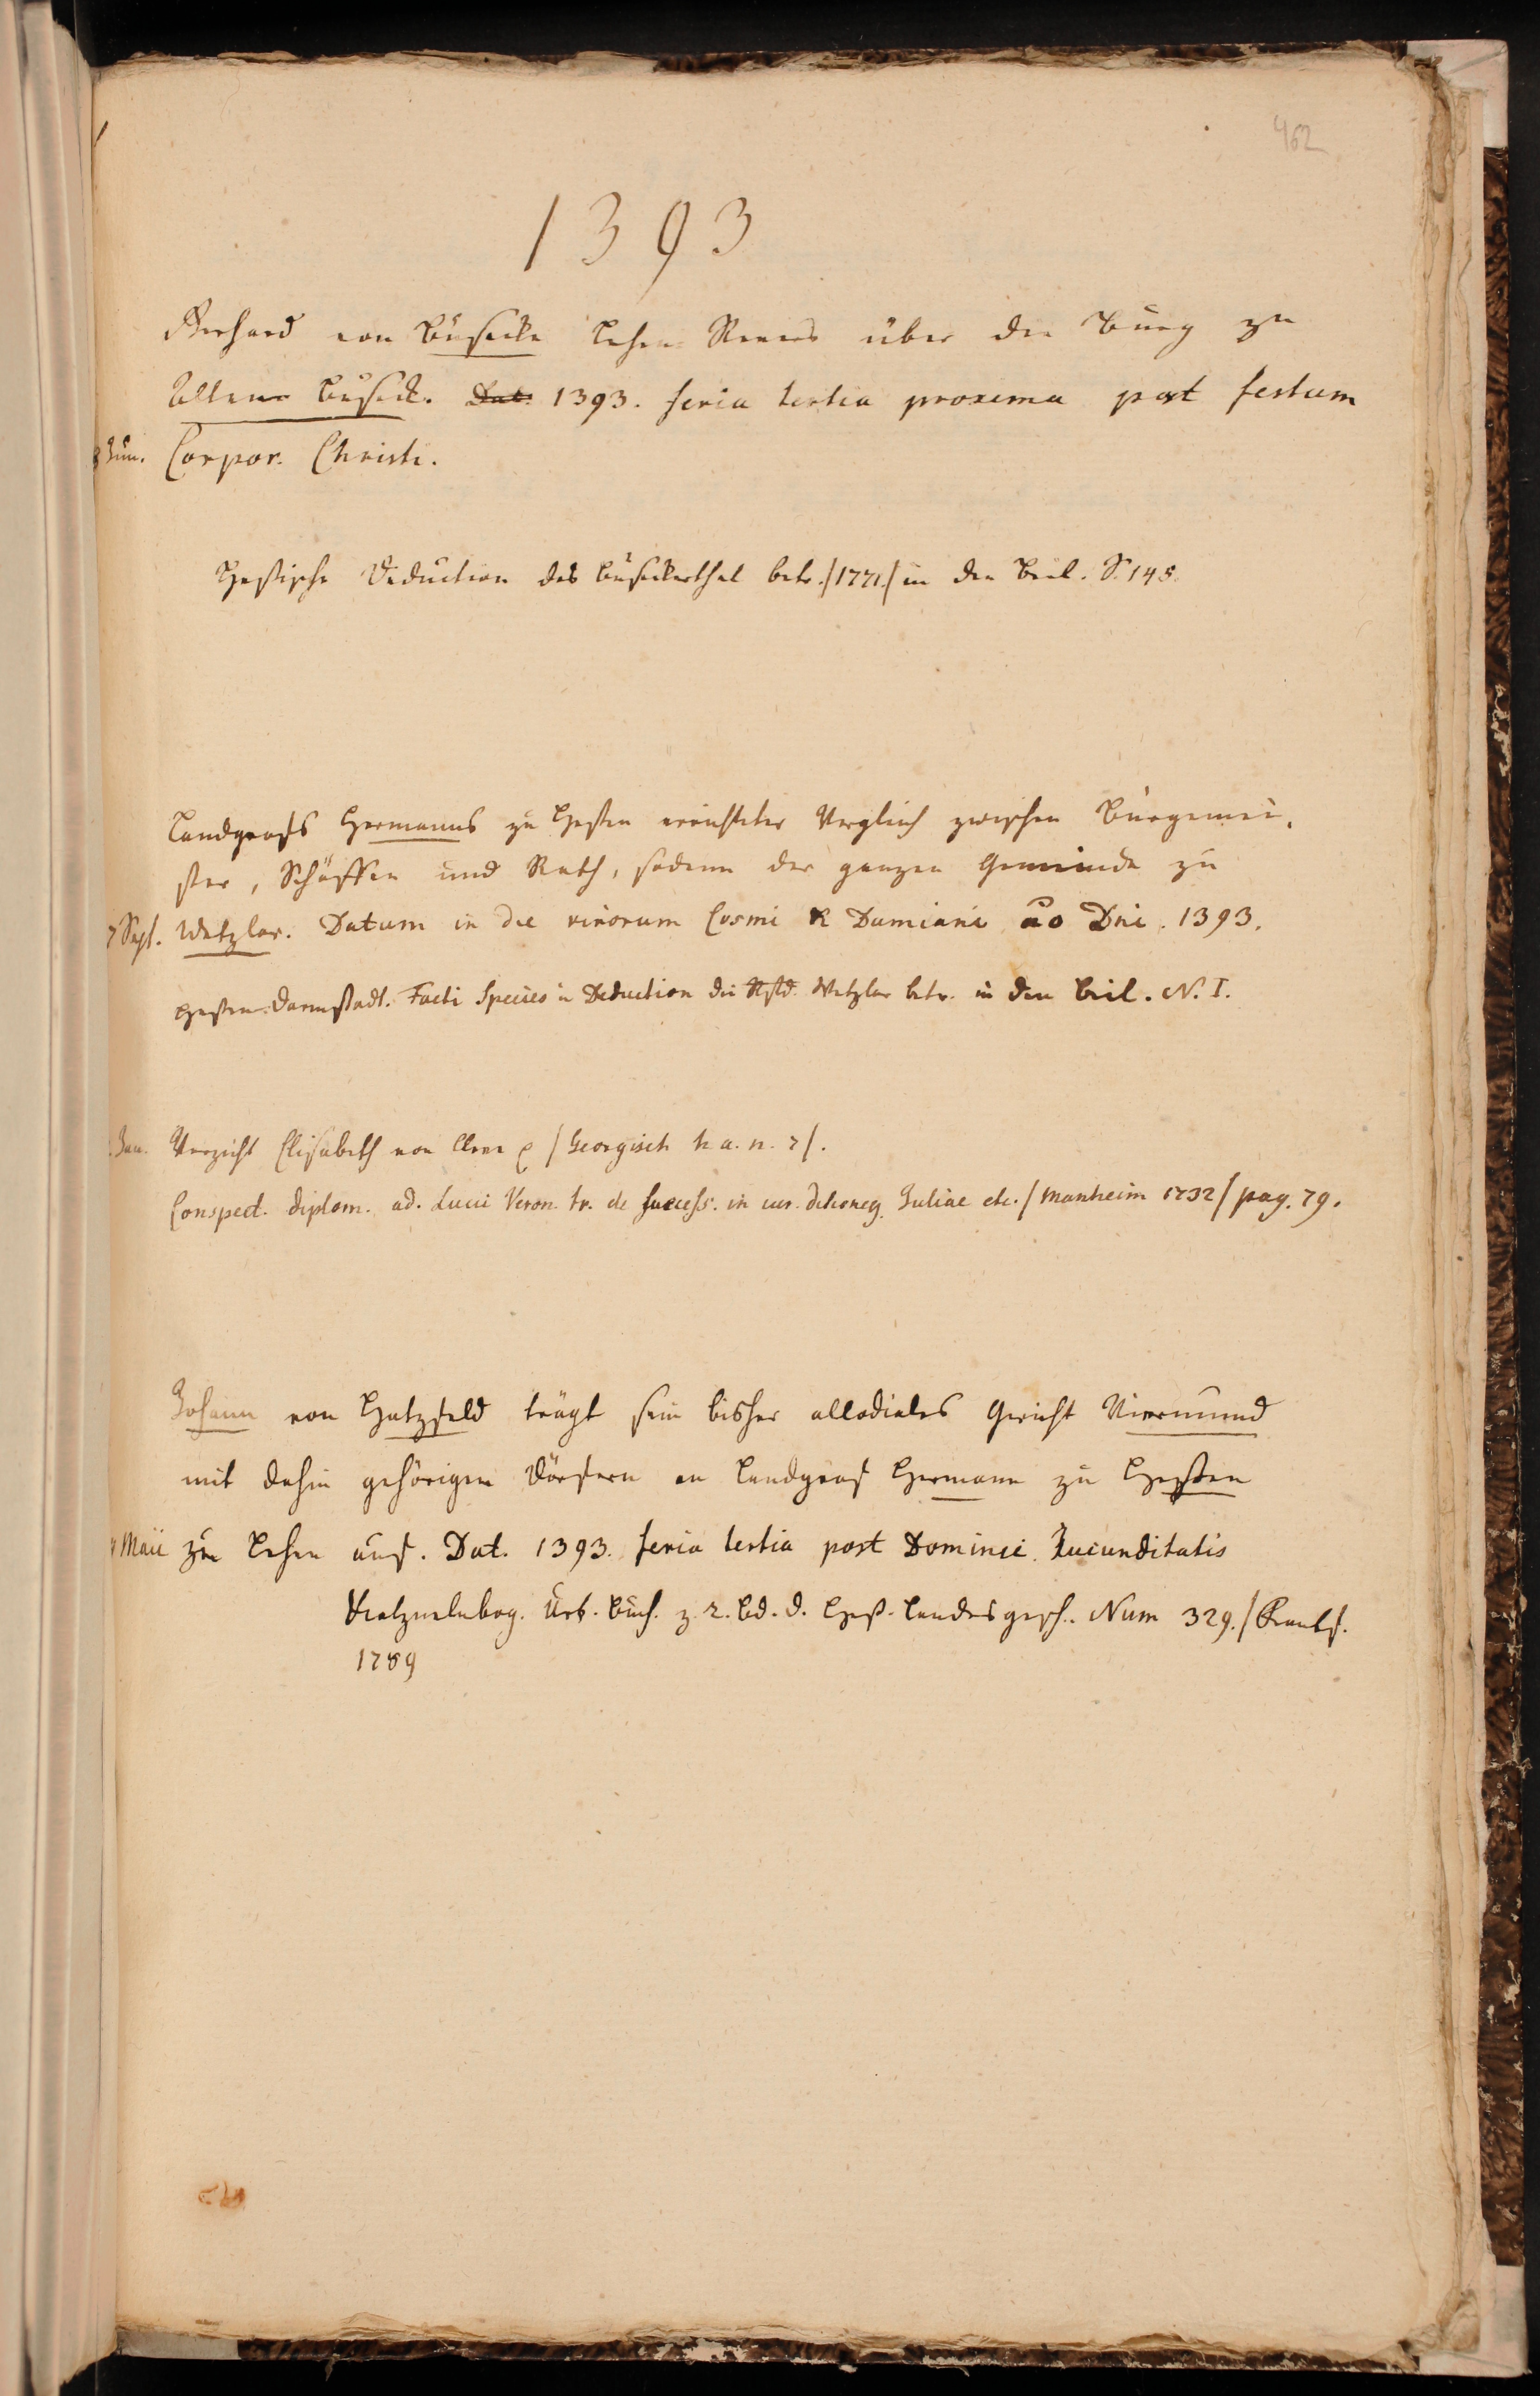 462
1393
Gerhard von Busecke Lehen Revers über den Burg zu
Alten Buseck. Dat. 1393. feria tertia proxima post festum
Jun. Corpor. Christi.
Heßische Deduction das Buseckerthal betr. /1771./ in den Beil. S. 148.
Landgrafs Hermanns zu Heßen errichteter Verglich zwischen Burgemei-
ster, Schöffen und Rath, sodann der ganzen Gemeinde zu
7 Sept. Wetzlar. Datum in die virorum Cosmi & Damiani ao Dni. 1393.
Heßen-Darmstadt. Facti Species in Deduction die Wetzlar betr. in den Beil. N. I.
Jan. Verzicht Elisabeth von Cleve / Georgisch h. a. n. 7/.
Conspect. diplom. ad. Lucii Veron. tr. de success. in Juliae etc. / Manheim 1732/ pag. 79.
Johann von Hatzfeld trägt sein bisher allodiales Gericht Viermünd
mit dahin gehörigen Dörfern an Landgraf Hermann zu Heßen
Maii zu Lehen auf. Dat. 1393. feria tertia post Dominic. Jucunditatis
Katzenelnbog. Urk. Buch. z. 2. Bd. d. Heß. Landesgesch. Num 329. / Frankf.
1789